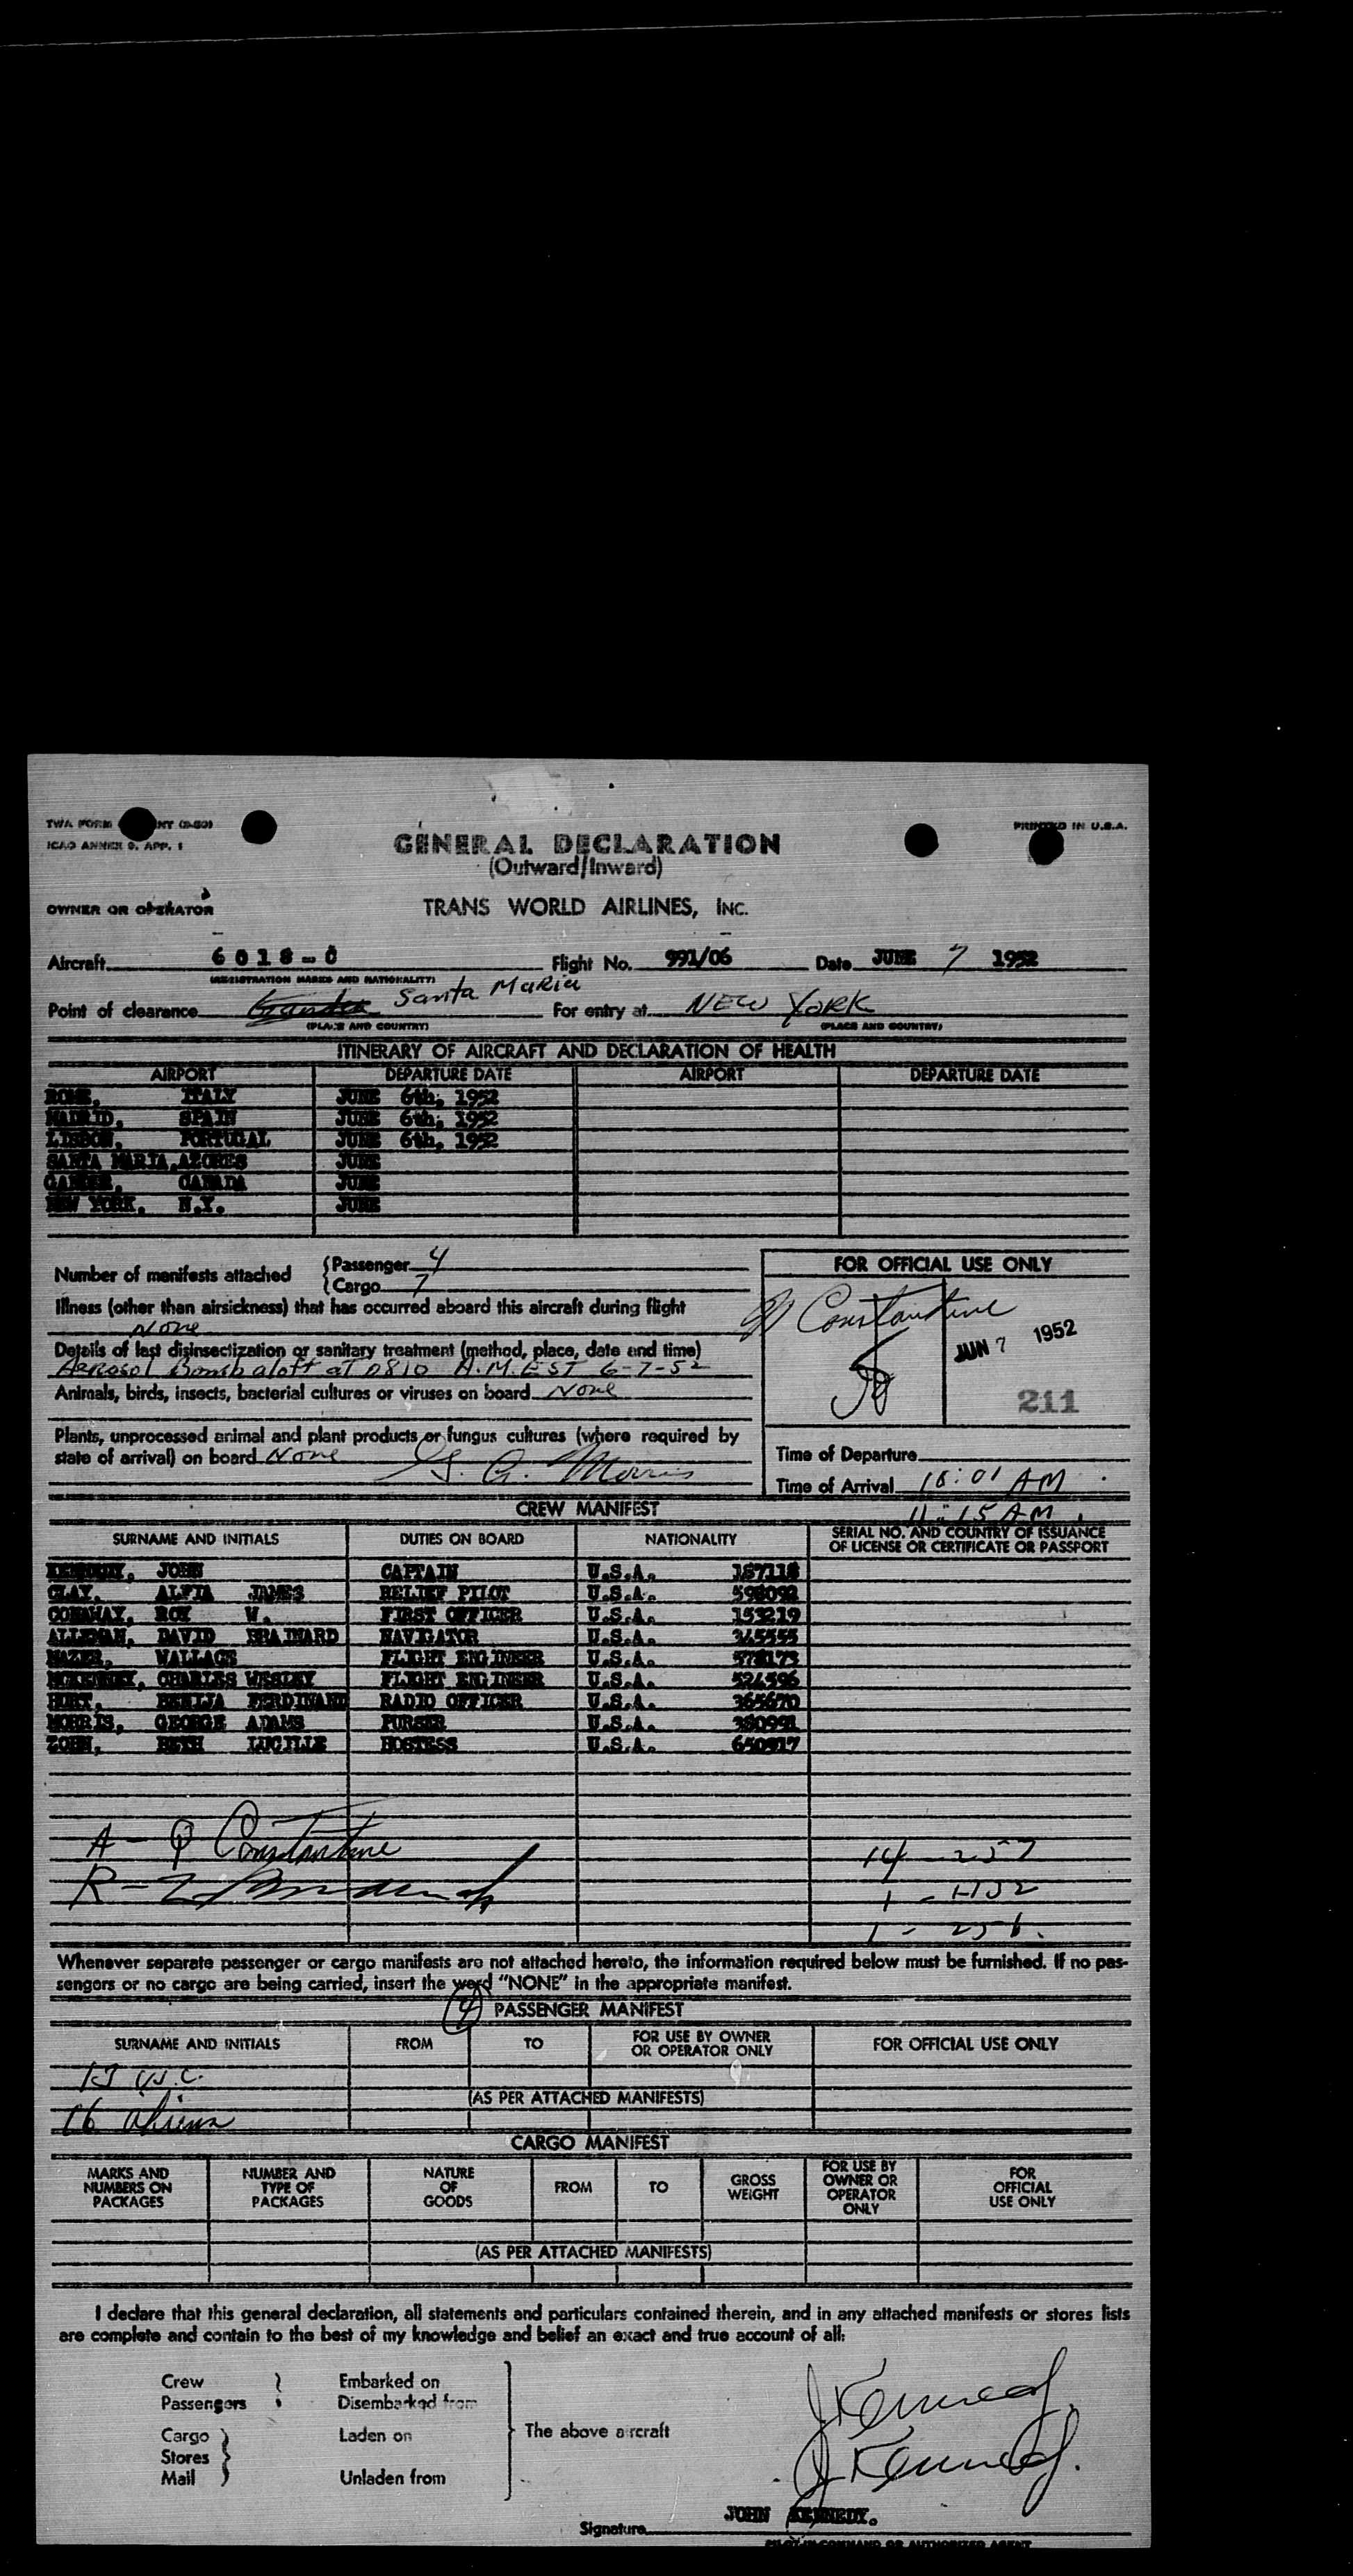 TWA FORM NT (3-50)
PRINTED IN U.S.A.
ICAO ANNEX 9, APP. 1
GENERAL DECLARATION
(Outward/Inward)
OWNER OR OPERATOR TRANS WORLD AIRLINES, INC.
Aircraft 6018-C Flight No. 991/06 Date JUNE 7 1952
(REGISTRATION MARKS AND NATIONALITY)
Point of clearance Santa Maria For entry at NEW YORK
(PLACE AND COUNTRY) (PLACE AND COUNTRY)
ITINERARY OF AIRCRAFT AND DECLARATION OF HEALTH
AIRPORT DEPARTURE DATE AIRPORT DEPARTURE DATE
ROME, ITALY JUNE 6th, 1952
MADRID, SPAIN JUNE 6th, 1952
LISBON, PORTUGAL JUNE 6th, 1952
SANTA MARIA, AZORES JUNE
GANDER, CANADA JUNE
NEW YORK, N.Y. JUNE
Number of manifests attached {Passenger 4
{Cargo 7
FOR OFFICIAL USE ONLY
Illness (other than airsickness) that has occurred aboard this aircraft during flight
None
Constantine
JUN 7 1952
Details of last disinsectization or sanitary treatment (method, place, date and time)
Aerosol Bomb aloft at 0810 A.M. EST 6-7-52
Animals, birds, insects, bacterial cultures or viruses on board None
211
Plants, unprocessed animal and plant products or fungus cultures (where required by
state of arrival) on board None G. A. Morris
Time of Departure
Time of Arrival 10:01 AM
11:15 AM
CREW MANIFEST
SURNAME AND INITIALS DUTIES ON BOARD NATIONALITY SERIAL NO. AND COUNTRY OF ISSUANCE OF LICENSE OR CERTIFICATE OR PASSPORT
KENNEDY, JOHN CAPTAIN U.S.A. 187118
CLAY, ALFIA JAMES RELIEF PILOT U.S.A. 598092
CONAWAY, ROY W. FIRST OFFICER U.S.A. 153219
ALLEMAN, DAVID BRAINARD NAVIGATOR U.S.A. 345555
MAZER, WALLACE FLIGHT ENGINEER U.S.A. 578173
MCKENNEY, CHARLES WESLEY FLIGHT ENGINEER U.S.A. 524596
FERDINAND RADIO OFFICER U.S.A. 365670
MORRIS, GEORGE ADAMS PURSER U.S.A. 380991
ZOHN, BETH LUCILLE HOSTESS U.S.A. 650917
A - Q Constantine
14 - 257
R - Z
1 -
1 - 256.
Whenever separate passenger or cargo manifests are not attached hereto, the information required below must be furnished. If no pas-
sengers or no cargo are being carried, insert the word "NONE" in the appropriate manifest.
4 PASSENGER MANIFEST
SURNAME AND INITIALS FROM TO FOR USE BY OWNER OR OPERATOR ONLY FOR OFFICIAL USE ONLY
(AS PER ATTACHED MANIFESTS)
16 aliens
CARGO MANIFEST
MARKS AND NUMBERS ON PACKAGES NUMBER AND TYPE OF PACKAGES NATURE OF GOODS FROM TO GROSS WEIGHT FOR USE BY OWNER OR OPERATOR ONLY FOR OFFICIAL USE ONLY
(AS PER ATTACHED MANIFESTS)
I declare that this general declaration, all statements and particulars contained therein, and in any attached manifests or stores lists
are complete and contain to the best of my knowledge and belief an exact and true account of all:
Crew Embarked on
Passengers Disembarked from
Cargo Laden on The above aircraft
Stores
Mail Unladen from
J Kennedy
J Kennedy.
JOHN KENNEDY.
Signature
PILOT-IN-COMMAND OR AUTHORIZED AGENT